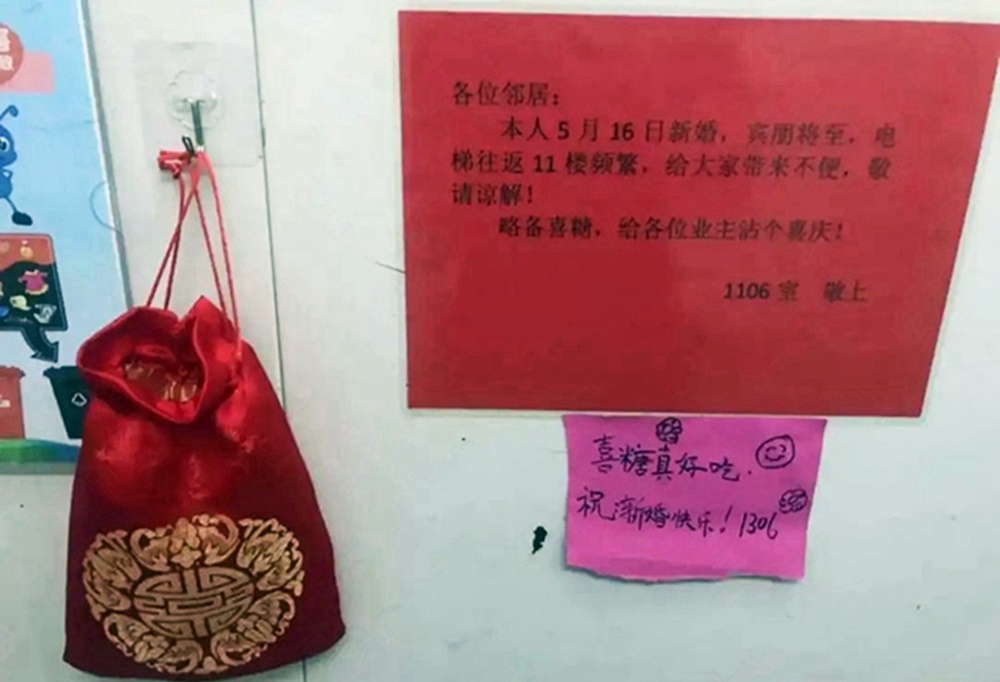 各位邻居：
本人5月16日新婚，宾朋将至，电
梯往返11楼频繁，给大家带来不便，敬
请谅解！
略备喜糖，给各位业主沾个喜庆！
1106室 敬上
喜糖真好吃.
祝新婚快乐！1306